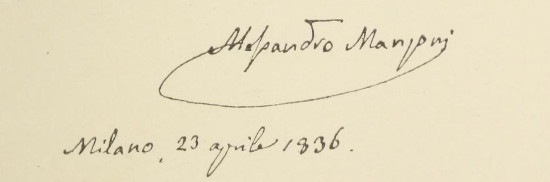 Alessandro Manzoni
Milano, 23 aprile 1836.